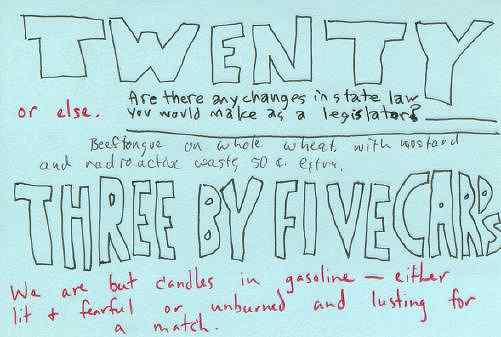 TWENTY
Are there any changes in state law
or else. you would make as a legislator?
Beeftongue on whole wheat with mustard
and radioactive waste, 50 c. extra.
THREE BY FIVE CARDS
We are but candles in gasoline — either
lit + fearful or unburned and lusting for
a match.